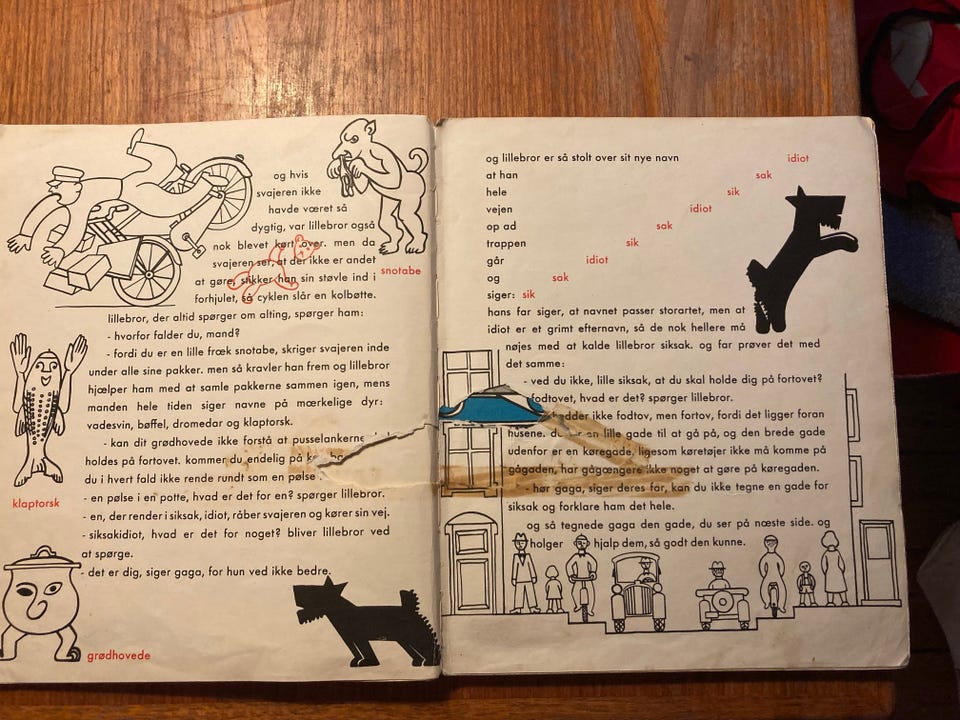 og hvis
svajeren ikke
havde været så
dygtig, var lillebror også
nok blevet kørt over. men da
svajeren ser, at der ikke er andet
at gøre, stikker han sin støvle ind i
forhjulet, så cyklen slår en kolbøtte.
snotabe
lillebror, der altid spørger om alting, spørger ham:
- hvorfor falder du, mand?
- fordi du er en lille fræk snotabe, skriger svajeren inde
under alle sine pakker. men så kravler han frem og lillebror
hjælper ham med at samle pakkerne sammen igen, mens
manden hele tiden siger navne på mærkelige dyr:
vadesvin, bøffel, dromedar og klaptorsk.
- kan dit grødhovede ikke forstå at pusselankerne
holdes på fortovet. kommer du endelig på
du i hvert fald ikke rende rundt som en pølse
- en pølse i en potte, hvad er det for en? spørger lillebror.
- en, der render i siksak, idiot, råber svajeren og kører sin vej.
- siksakidiot, hvad er det for noget? bliver lillebror ved
at spørge.
- det er dig, siger gaga, for hun ved ikke bedre.
klaptorsk
grødhovede
og lillebror er så stolt over sit nye navn idiot
at han sak
hele sik
vejen idiot
op ad sak
trappen sik
går idiot
og sak
siger: sik
hans far siger, at navnet passer storartet, men at
idiot er et grimt efternavn, så de nok hellere må
nøjes med at kalde lillebror siksak. og far prøver det med
det samme:
- ved du ikke, lille siksak, at du skal holde dig på fortovet?
fodtovet, hvad er det? spørger lillebror.
hedder ikke fodtov, men fortov, fordi det ligger foran
husene. en lille gade til at gå på, og den brede gade
udenfor er en køregade. ligesom køretøjer ikke må komme på
gågaden, har gågængere ikke noget at gøre på køregaden.
- hør gaga, siger deres far, kan du ikke tegne en gade for
siksak og forklare ham det hele.
og så tegnede gaga den gade, du ser på næste side. og
holger hjalp dem, så godt den kunne.